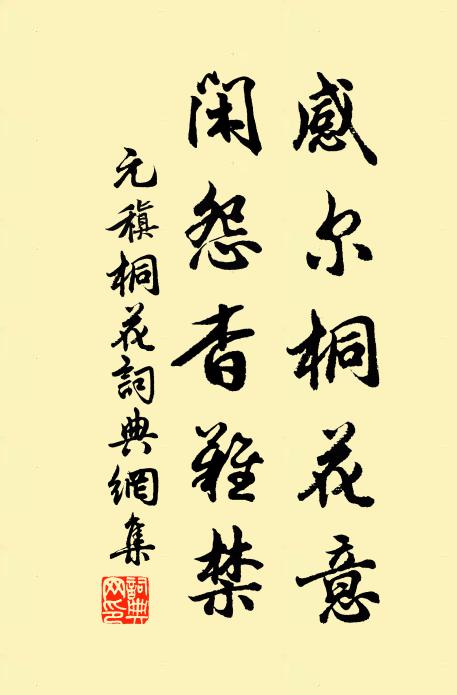 感尔桐花意
闲怨杳难禁
元稹桐花詞典網集
詞典网印